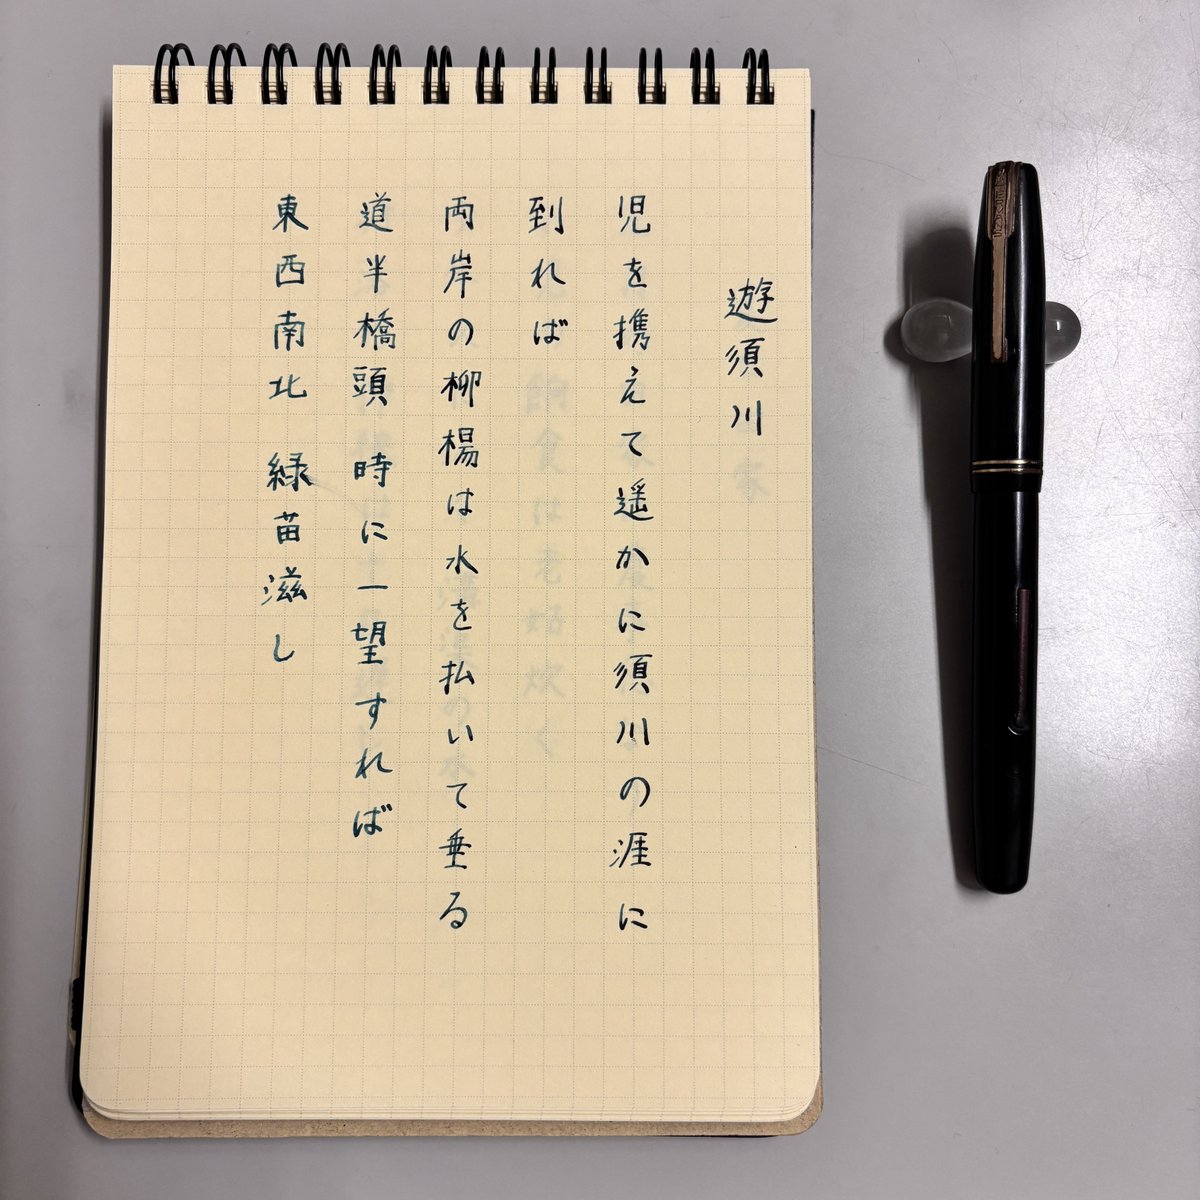 遊須川
児を携えて遥かに須川の涯に
到れば
両岸の柳楊は水を払いて垂る
道半橋頭時に一望すれば
東西南北 緑苗滋し